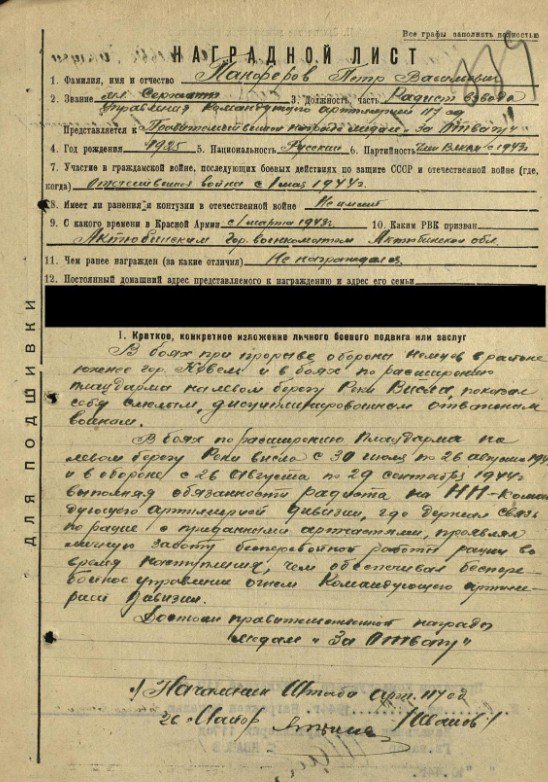 Все графы заполнять полностью
НАГРАДНОЙ ЛИСТ
1. Фамилия, имя и отчество Панферов Петр Васильевич
2. Звание мл. Сержант 3. Должность, часть Радист взвода
управления Командующего артиллерией 117 сд
Представляется к Правительственной награде медаль „За Отвагу"
4. Год рождения 1925 5. Национальность Русский 6. Партийность член ВЛКСМ с 1943г
7. Участие в гражданской войне, последующих боевых действиях по защите СССР и отечественной войне (где,
когда) Отечественная война с 1 мая 1944г
8. Имеет ли ранения и контузии в отечественной войне Не имеет
9. С какого времени в Красной Армии с 1 марта 1943г 10. Каким РВК призван
Актюбинским гор. военкоматом Актюбинской обл.
11. Чем ранее награжден (за какие отличия) Не награждался
12. Постоянный домашний адрес представляемого к награждению и адрес его семьи
I. Краткое, конкретное изложение личного боевого подвига или заслуг
В боях при прорыве обороны немцев в районе
южнее гор. Ковель и в боях по расширению
плацдарма на левом берегу Реки Висла, показал
себя смелым, дисциплинированным отважным
воином.
В боях по расширению плацдарма на
левом берегу Реки Висла с 30 июля по 26 августа 194
и в обороне с 26 Августа по 29 сентября 1944г
выполняя обязанности радиста на НП Коман
дующего артиллерией дивизии, где держал связь
по рации с приданными артчастями, проявлял
личную заботу бесперебойной работы рации во
время наступления, чем обеспечивал беспере
бойное управление огнем Командующего артилле
рией дивизии.
Достоин правительственной награды
медаль „За Отвагу"
Начальник Штаба арт. 117 сд
гв Майор /Шашов/
ДЛЯ ПОДШИВКИ